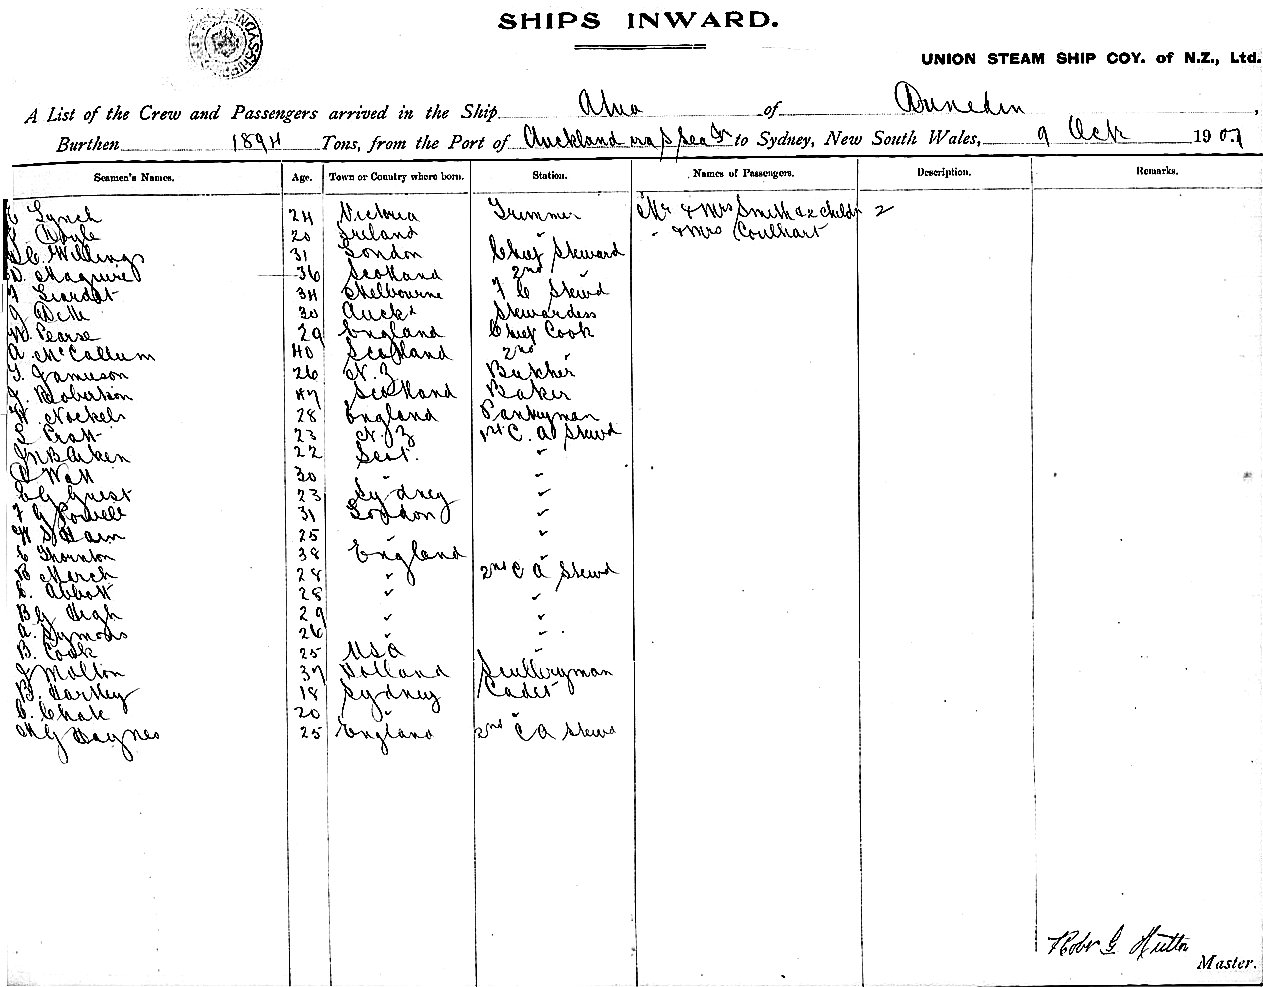 SHIPS INWARD.
UNION STEAM SHIP COY. of N.Z., Ltd.
A List of the Crew and Passengers arrived in the Ship of Dunedin,
Burthen 1894 Tons, from the Port of Auckland to Sydney, New South Wales, 9 Oct 1907
Seamen's Names. Age. Town or Country where born. Station. Names of Passengers. Description. Remarks.
Lynch 24 Victoria Trimmer Mr & Mrs Smith & 2 childn 2
Doyle 20 Ireland " " & Mrs Coulhart
C. Willings 31 London Chief Steward
D. Maguire 36 Scotland 2nd "
34 Melbourne Stewd
30 Auckd Stewardess
W. Pearse 29 England Chief Cook
A. McCallum 40 Scotland 2nd "
Jamieson 26 N.Z Butcher
J. Robertson 47 Scotland Baker
Nockels 28 England Pantryman
Pratt 23 N.Z C. A Stewd
22 Scot. "
Watt 30 " "
Guest 23 Sydney "
F G Powell 31 London "
25 " "
Thornton 38 England "
March 28 " 2nd C A Stewd
Abbott 28 " "
B G High 29 " "
A. Symons 26 " "
B. Cook 25 USA "
J Molton 37 Holland Sculleryman
B. 18 Sydney Cadet
20 " "
Haynes 25 England 2nd C A Stewd
Robt G Hutton
Master.